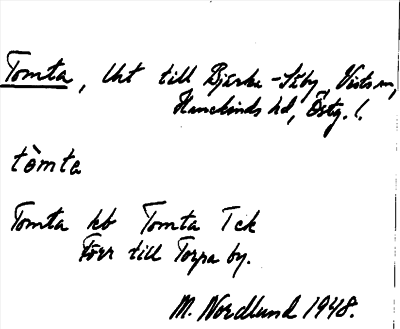 Tomta, Uht till Bjärka-Säby, Vists sn,
Hanekinds hd, Östg. l.
tòmta
Tomta kb Tomta Tck
Förr till Torpa by.
M. Nordlund 1948.